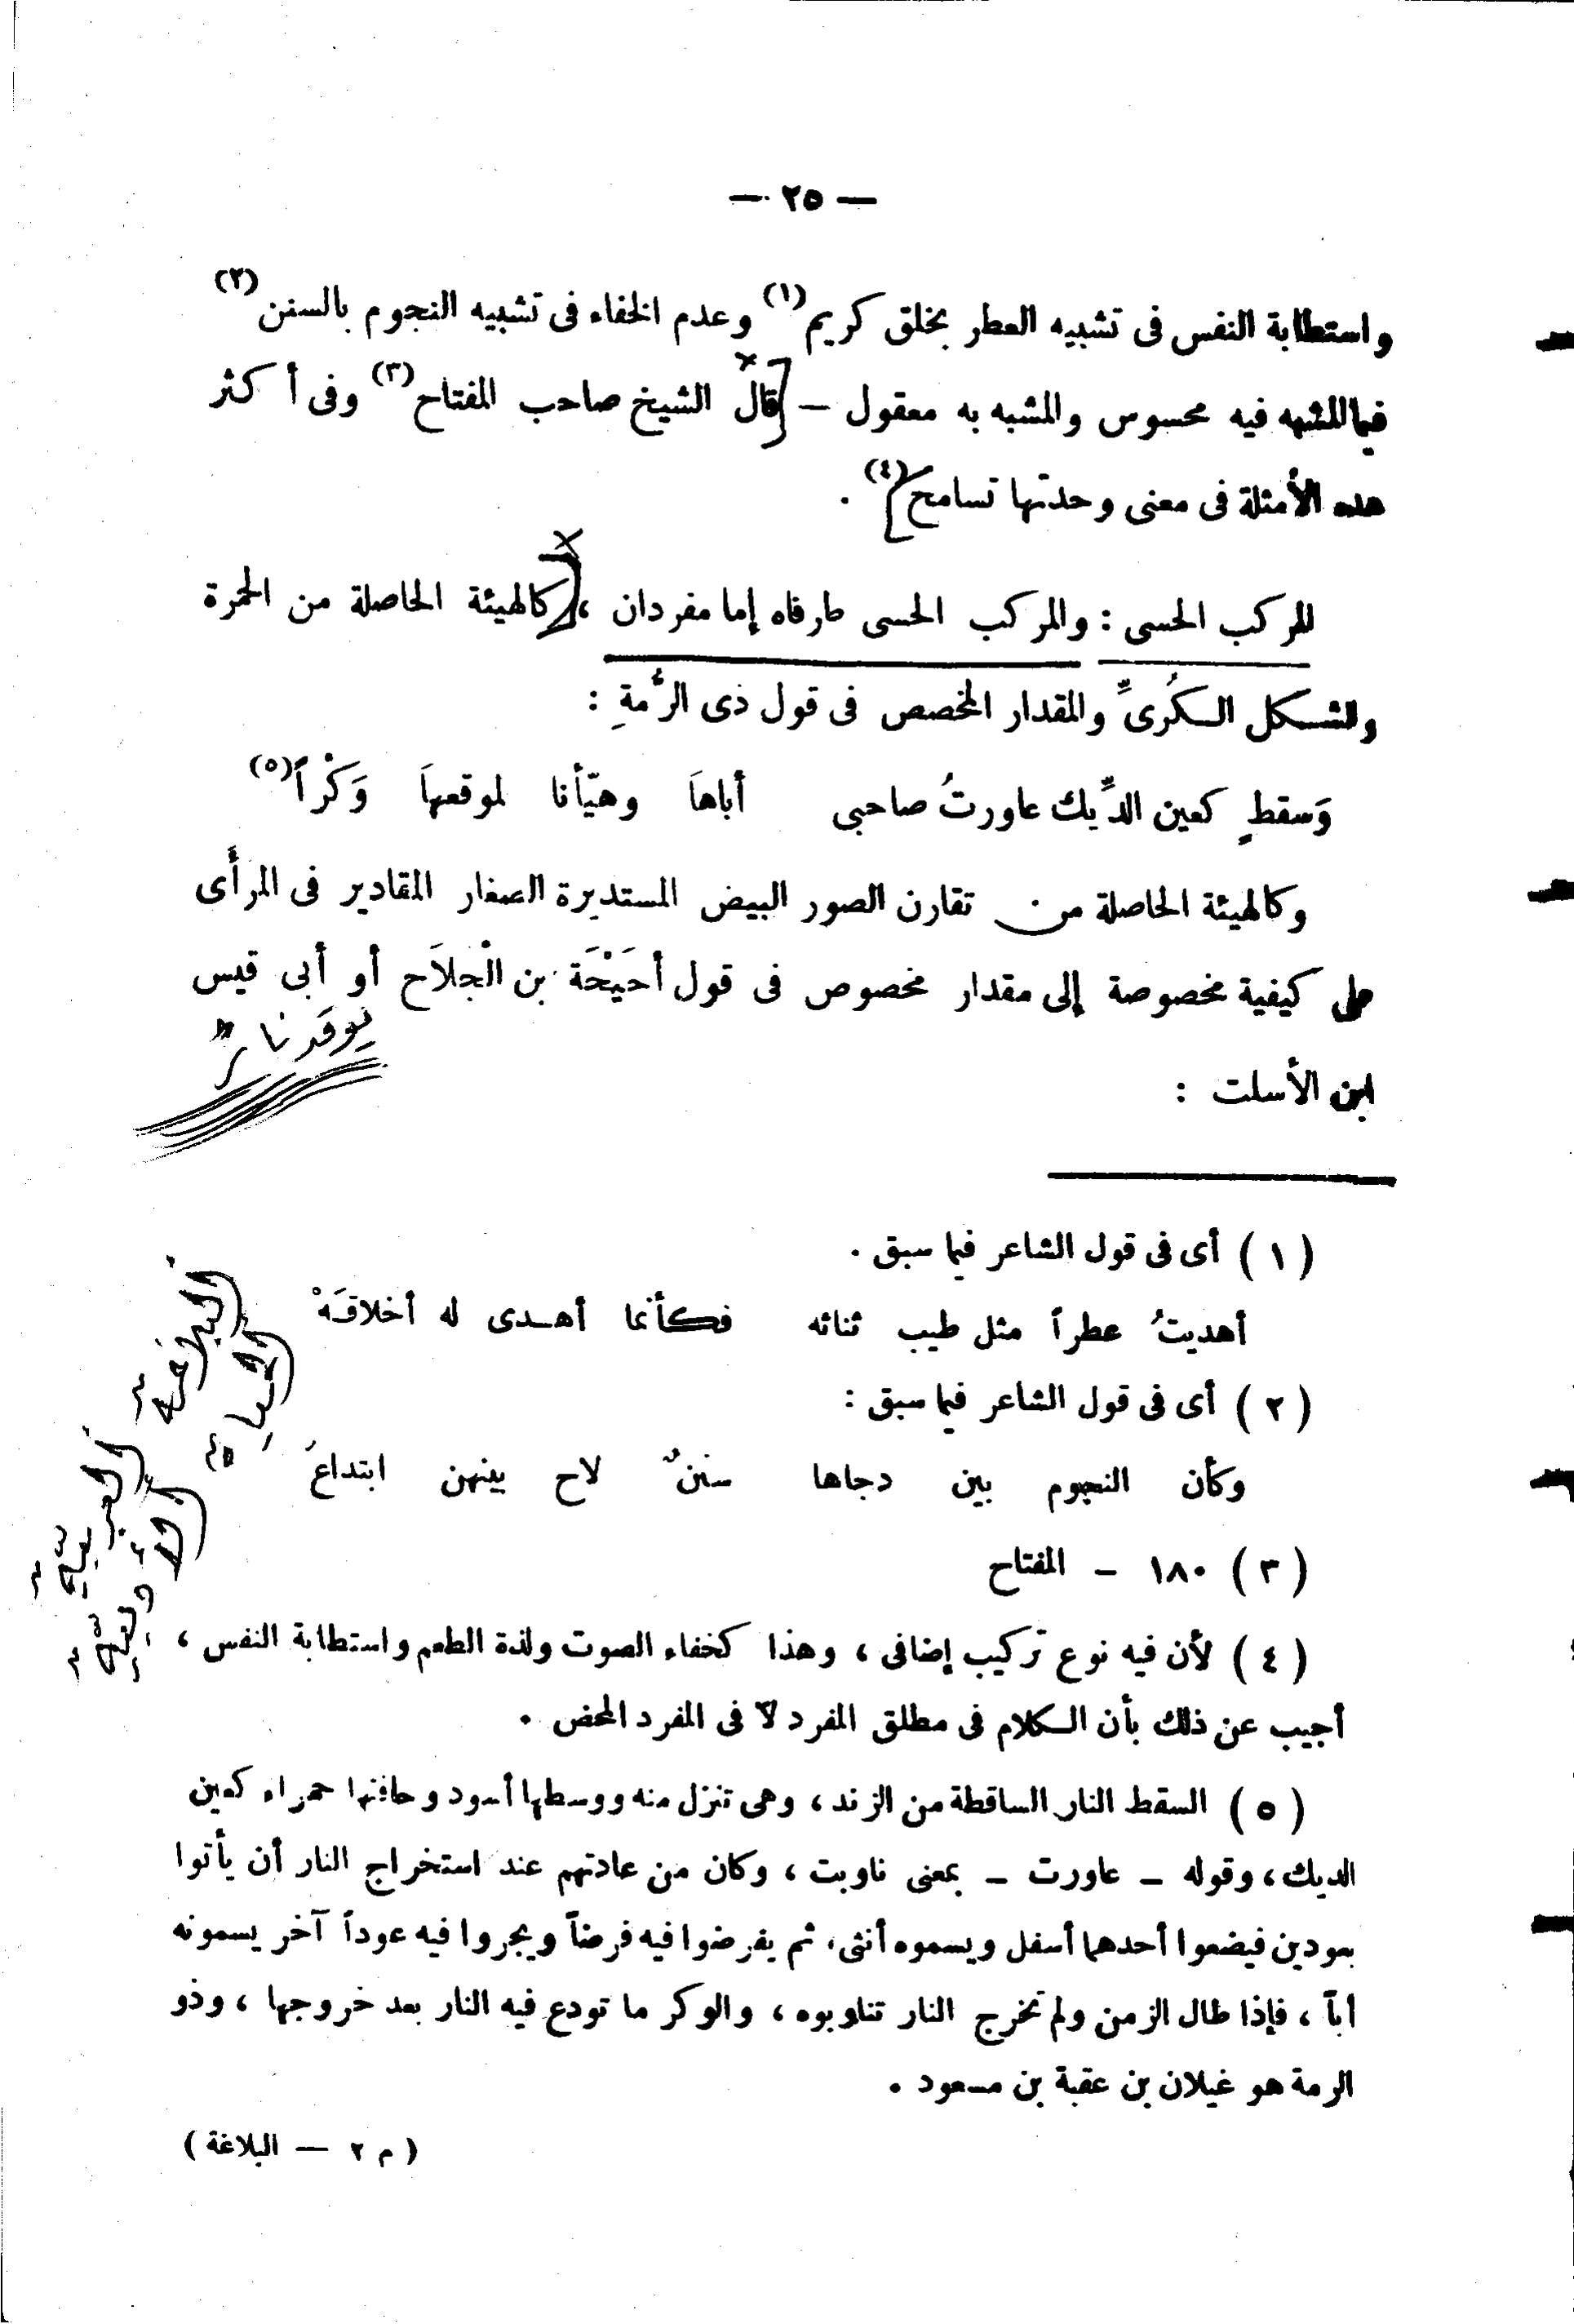 — ٢٥ —
واستطابة النفس فى تشبيه العطر بخلق كريم(١) وعدم الخفاء فى تشبيه النجوم بالسنن(٢)
فيما المشبه فيه محسوس والمشبه به معقول — [قال الشيخ صاحب المفتاح(٣) وفى أكثر
هذه الأمثلة فى معنى وحدتها تسامح](٤) .
المركب الحسى : والمركب الحسى طرفاه إما مفردان ، [كالهيئة الحاصلة من الحمرة
والشكل الكُرىِّ والمقدار المخصص فى قول ذى الرُّمةِ :
وَسقطٍ كعين الدِّيك عاورتُ صاحبى أباهاَ وهيّأنا لموقعهاَ وَكْراً(٥)
وكالهيئة الحاصلة من تقارن الصور البيض المستديرة الصغار المقادير فى المرأَى
على كيفية مخصوصة إلى مقدار مخصوص فى قول أحَيْحَة بن الْجلاَح أو أبى قيس
ابن الأسلت :
(١) أى فى قول الشاعر فيما سبق .
أهديتُ عطراً مثل طيب ثنائه فكأنما أهدى له أخلاقَهْ
(٢) أى فى قول الشاعر فيما سبق :
وكأن النجوم بين دجاها سننٌ لاح بينهن ابتداعُ
(٣) ١٨٠ — المفتاح
(٤) لأن فيه نوع تركيب إضافى ، وهذا كخفاء الصوت ولذة الطعم واستطابة النفس ،
أجيب عن ذلك بأن الكلام فى مطلق المفرد لا فى المفرد المحض .
(٥) السقط النار الساقطة من الزند ، وهى تنزل منه ووسطها أسود وحافتها حمراء كعين
الديك ، وقوله — عاورت — بمعنى ناوبت ، وكان من عادتهم عند استخراج النار أن يأتوا
بعودين فيضعوا أحدهما أسفل ويسموه أنثى ، ثم يفرضوا فيه فرضاً ويجروا فيه عوداً آخر يسمونه
أباً ، فإذا طال الزمن ولم تخرج النار تناوبوه ، والوكر ما تودع فيه النار بعد خروجها ، وذو
الرمة هو غيلان بن عقبة بن مسعود .
(م ٢ — البلاغة)
البلاغة
العربية